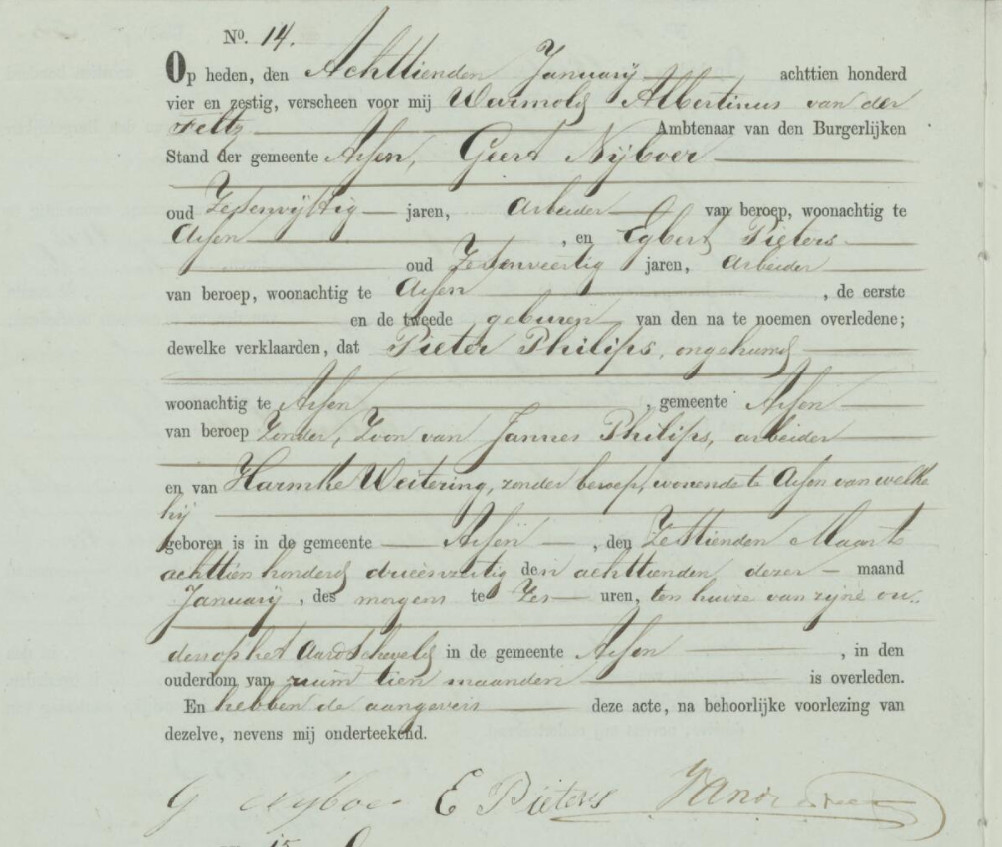 No. 14.
Op heden, den Achttienden Januarij achttien honderd
vier en zestig, verscheen voor mij Warmolds Albertinus van der
Feltz Ambtenaar van den Burgerlijken
Stand der gemeente Assen, Geert Nijboer
oud Zesenvijftig jaren, Arbeider van beroep, woonachtig te
Assen, en Egbert Pieters
oud Zesenveertig jaren, Arbeider
van beroep, woonachtig te Assen, de eerste
en de tweede geburen van den na te noemen overledene;
dewelke verklaarden, dat Pieter Philips, ongehuwd
woonachtig te Assen, gemeente Assen
van beroep Zonder, Zoon van Jannes Philips, arbeider
en van Harmtke Weitering, zonder beroep, wonende te Assen van welke
hij
geboren is in de gemeente Assen, den Zestienden Maart
achttien honderd drieenzestig den achttienden dezer maand
Januarij, des morgens te Zes uren, ten huize van zijne ou..
ders op het Aardscheveld in de gemeente Assen, in den
ouderdom van ruim tien maanden is overleden.
En hebben de aangevers deze acte, na behoorlijke voorlezing van
dezelve, nevens mij onderteekend.
G Nijboer E Pieters
15